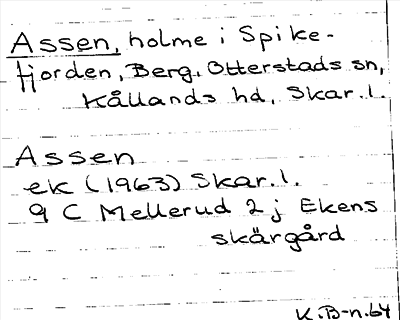 Assen, holme i Spike-
fjorden, Berg, Otterstads sn,
Kållands hd, Skar. l.
Assen
ek (1963) Skar. l.
9 C Mellerud 2 j Ekens
skärgård
K. B-n. 64